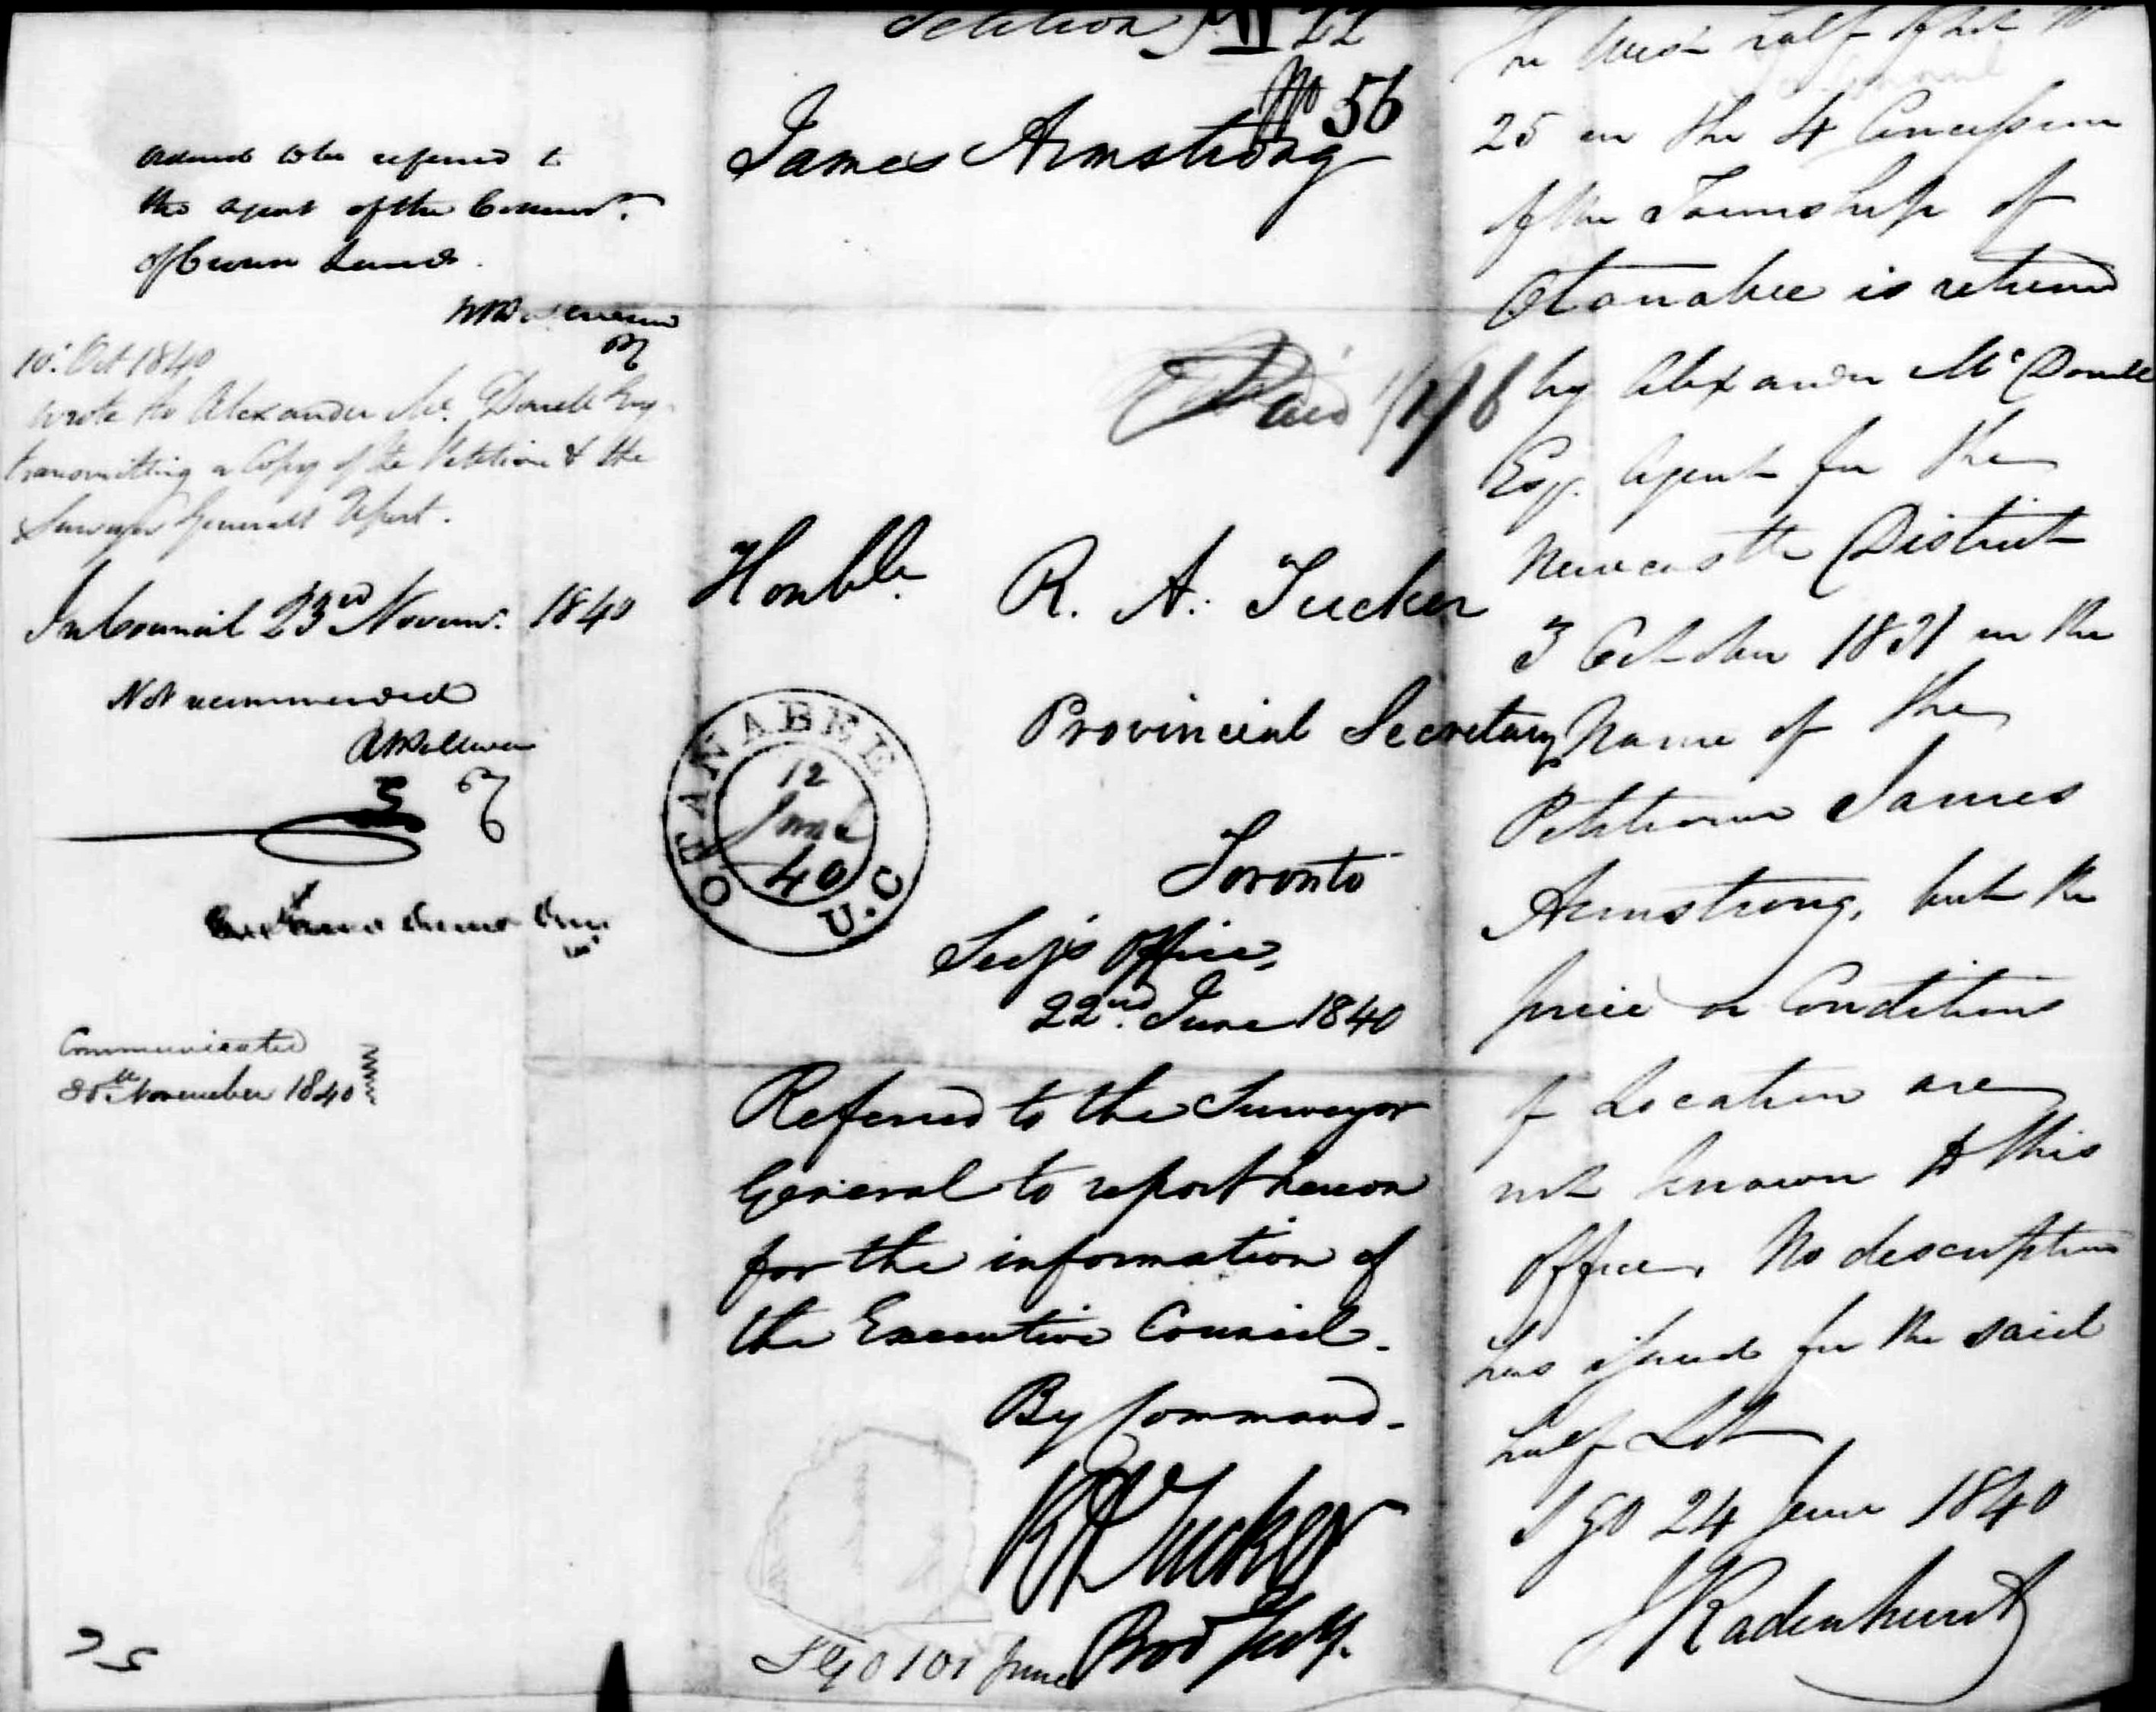 Petition
No 56
James Armstrong
Paid
Honble. R. A. Tucker
Provincial Secretary
Toronto
OTANABEE
12
June
40
U.C
Secy's Office,
22nd. June 1840
Referred to the Surveyor
General to report hereon
for the information of
the Executive Council.
By Command.
RA Tucker
Pro Secy.
SGO June
to be referred to
the agent of the Commr.
of Crown Lands.
Oct 1840
Wrote to Alexander Mc. Donell Esq.
transmitting a Copy of the Petition & the
Surveyor Generals Report.
In Council 23rd Novemr. 1840
Not recommended
Communicated
November 1840
The West half of Lot No
25 in the 4 Concession
of the Township of
Otanabee is returned
by Alexander McDonell
Esqr. Agent for the
Newcastle District
3 October 1831 in the
Name of the
Petitioner James
Armstrong, but the
price or Conditions
of Location are
not known to this
Office. No description
has issued for the said
half Lot
S G O 24 June 1840
J Radenhurst